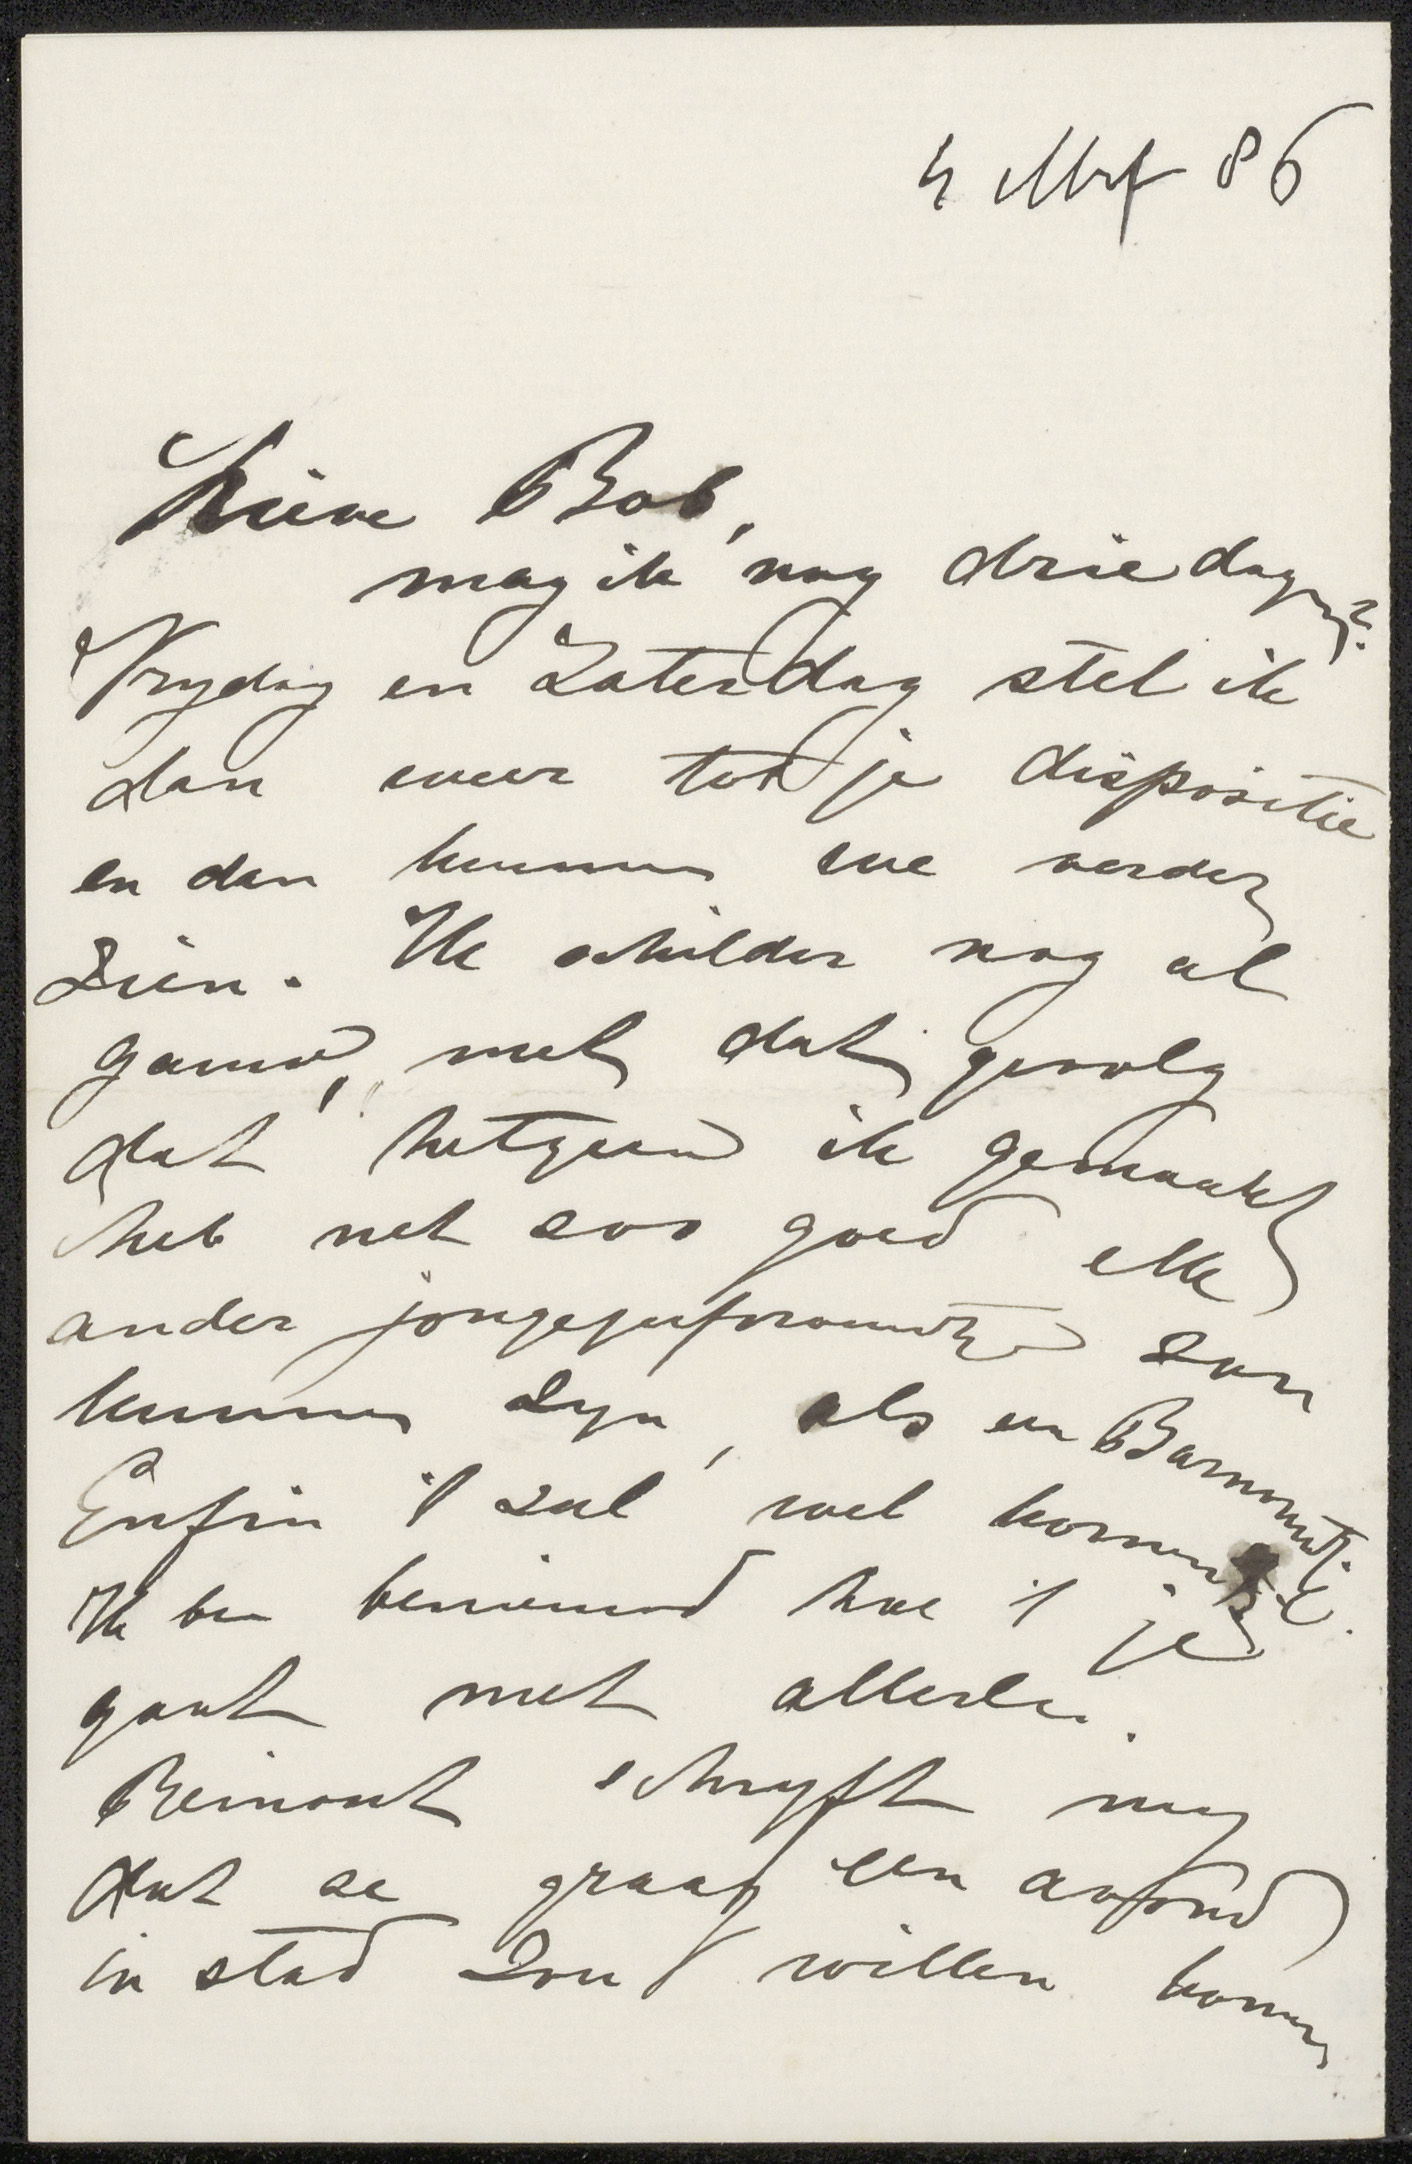 4 Mrt 86
Lieve Bob,
mag ik nog drie dagen?
Vrydag en Zaterdag stel ik
dan weer tot je dispositie
en dan kunnen we verder
zien. Ik schilder nog al
gauw, met dat gevolg
dat hetgeen ik gemaakt
heb net zoo goed elk
ander jongejufrouwtje zou
kunnen zyn, als en
Enfin 't zal wel komen
Ik ben benieuwd hoe 't je
gaat met allerlei.
schryft my
dat ze graag een avond
in stad zou willen komen